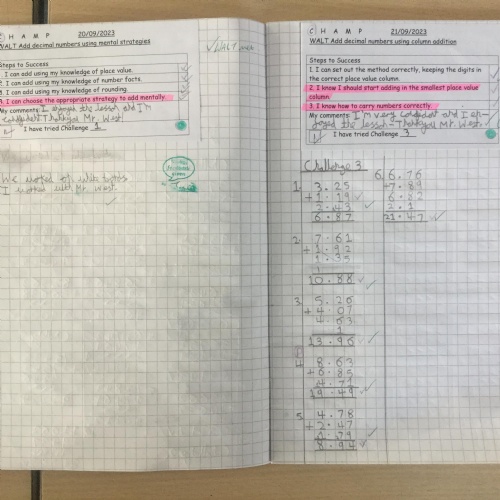 C H A M P 20/09/2023
WALT Add decimal numbers using mental strategies
Steps to Success
1. I can add using my knowledge of place value.
2. I can add using my knowledge of number facts.
3. I can add using my knowledge of rounding.
4. I can choose the appropriate strategy to add mentally.
My comments: I enjoyed the lesson and I'm
confident Thankyou Mr. West.
I have tried Challenge 1
WALT met
Verbal
feedback
given
We worked on white boards
I worked with Mr West.
C H A M P 21/09/2023
WALT Add decimal numbers using column addition
Steps to Success
1. I can set out the method correctly, keeping the digits in
the correct place value column.
2. I know I should start adding in the smallest place value
column.
3. I know how to carry numbers correctly.
My comments: I'm very confident and I en-
joyed the lesson - Thankyou Mr. West.
I have tried Challenge 3
Challenge 3
1. 3.25
+ 1.19
2.43
6.87
2. 7.61
+ 1.92
1.35
10.88
3. 5.26
+ 4.07
4.63
1
13.96
4. 8.63
+ 6.85
19.49
5. 4.78
+ 2.47
8.94
6. 6.76
+ 7.89
6.82
21.47